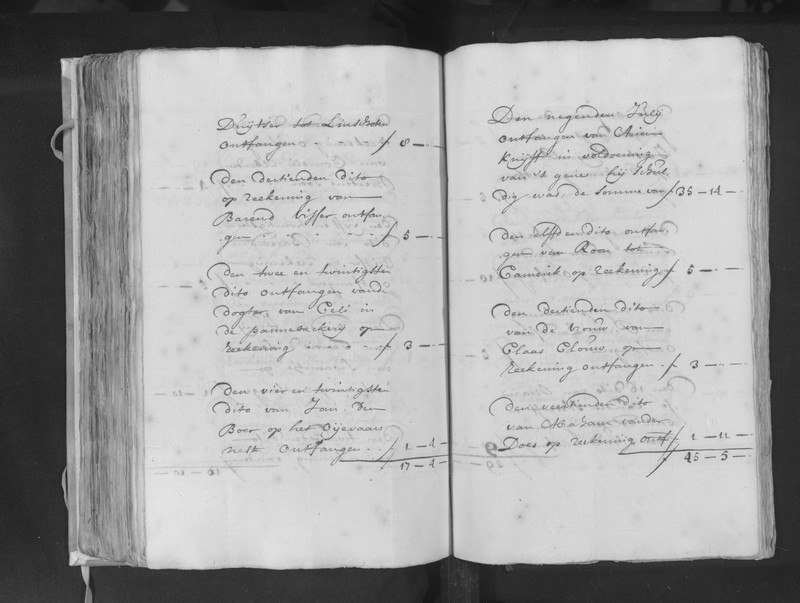 Duijtser tot Linschoten
ontfangen - - ƒ 8 -
den dertienden dito
op reekening van
Barend Visser ontfan
gen - - - ƒ 5 -
den twee en twintigsten
dito ontfangen vande
dogter van Celi in
de pannebackerij op
reekening - - ƒ 3 -
den vier en twintigsten
dito van Jan Den
Boer op het Oijevaars
nest ontfangen - ƒ 1 - 4 -
ƒ 17 - 4 -
Den negenden Julij
ontfangen van Arien
Knijff in voldoening
van 't gene hij schul
dig was, de somme van ƒ 35 - 14 -
den elffden dito ontfan
gen van Roon tot
Camerik op reekening ƒ 5 -
den dertienden dito
van de vrouw van
Claas Clouw op
reekening ontfangen ƒ 3 -
den veertienden dito
van Abraham vander
Does op reekening ontf ƒ 1 - 11 -
ƒ 45 - 5 -